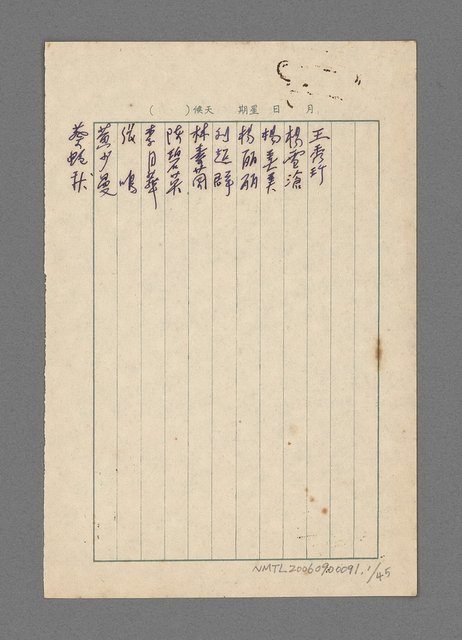 月 日 星期 天候( )
王秀玎
楊雪滄
楊美美
楊丽丽
刘超群
林素蘭
陳碧英
李月華
張鳴
黃少曼
蔡艷秋
NMTL20060900091.1/45